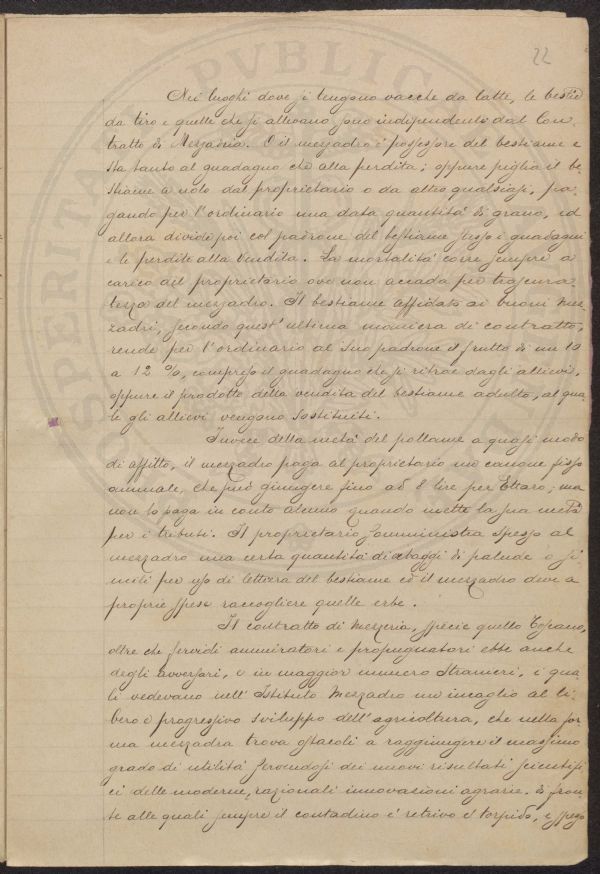 22
Nei luoghi dove si tengono vacche da latte, le bestie
da tiro e quelle che si allevano sono independenti dal Con-
tratto di Mezzadria. O il mezzadro è possessore del bestiame e
sta tanto al guadagno che alla perdita; oppure piglia il be-
stiame a nolo dal proprietario o da altro qualsiasi, pa-
gando per l'ordinario una data quantità di grano, ed
allora divide poi col padrone del bestiame stesso i guadagni
e le perdite alla vendita. La mortalità corre sempre a
carico del proprietario ove non accada per trascura-
tezza del mezzadro. Il bestiame affidato ai buoni mez-
zadri, secondo quest'ultima maniera di contratto,
rende per l'ordinario al suo padrone il frutto di un 10
a 12 %, compreso il guadagno che si ritrae dagli allievi,
oppure il prodotto della vendita del bestiame adulto, al qua-
le gli allievi vengono sostituiti.
Invece della metà del pollame a quasi modo
di affitto, il mezzadro paga al proprietario un canone fisso
annuale, che può giungere fino ad 8 lire per Ettaro; ma
non lo paga in conto alcuno quando mette la sua metà
per i tributi. Il proprietario somministra spesso al
mezzadro una certa quantità di di palude o si-
mili per uso di lettiera del bestiame ed il mezzadro deve a
proprie spese raccogliere quelle erbe.
Il contratto di mezzeria, specie quello Toscano,
oltre che fervidi ammiratori e propugnatori ebbe anche
degli avversari, e in maggior numero stranieri, i qua-
li vedevano nell'Istituto Mezzadro un incaglio al li-
bero e progressivo sviluppo dell'agricoltura, che nella for-
ma mezzadra trova ostacoli a raggiungere il massimo
grado di utilità servendosi dei nuovi risultati scientifi-
ci delle moderne, razionali innovazioni agrarie. Di fron-
te alle quali sempre il contadino è retrivo e torpido, e spesso
PVBLIC